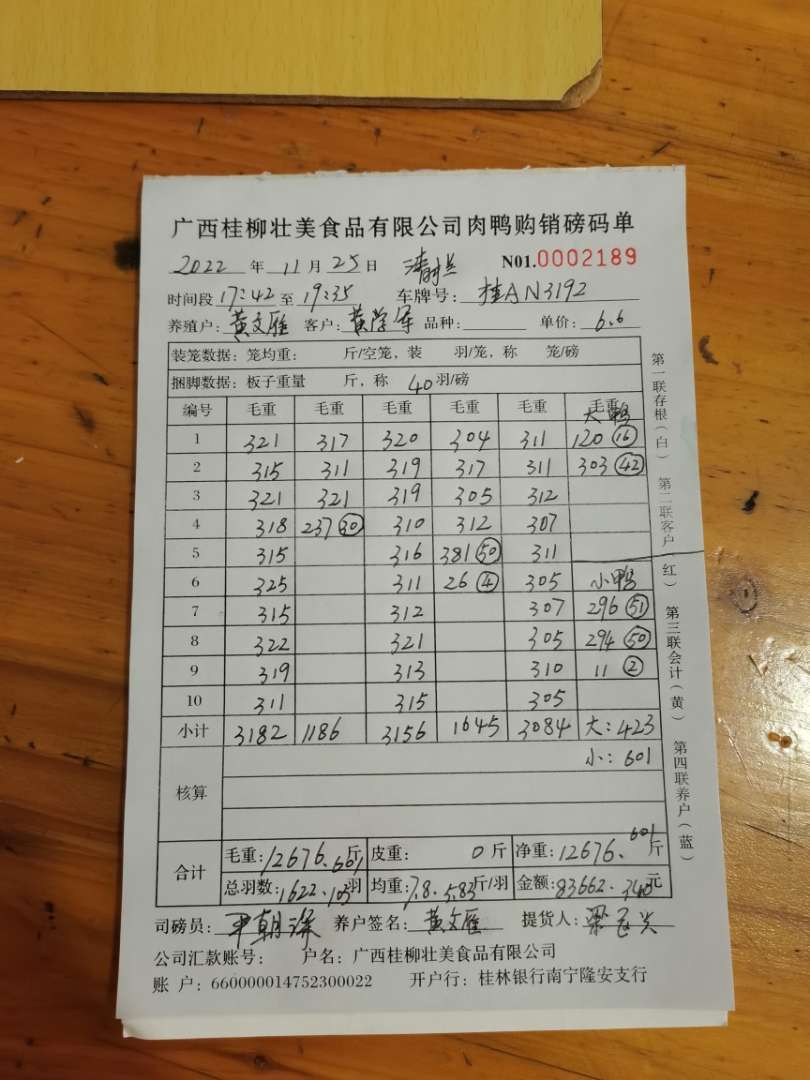 广西桂柳壮美食品有限公司肉鸭购销磅码单
2022 年 11 月 25 日 N01.0002189
时间段 17:42 至 19:35 车牌号: 桂AN3192
养殖户: 黄文雁 客户: 黄学军 品种: 单价: 6.6
装笼数据: 笼均重: 斤/空笼, 装 羽/笼, 称 笼/磅
捆脚数据: 板子重量 斤, 称 40 羽/磅
编号 毛重 毛重 毛重 毛重 毛重 毛重 大鸭
1 321 317 320 304 311 120 16
2 315 311 319 317 311 303 42
3 321 321 319 305 312
4 318 237 30 310 312 307
5 315 316 381 50 311
6 325 311 26 4 305 小鸭
7 315 312 307 296 51
8 322 321 305 294 50
9 319 313 310 11 2
10 311 315 305
小计 3182 1186 3156 1645 3084 大: 423
小: 601
核算
合计
毛重: 12676. 601 斤 皮重: 0 斤 净重: 12676. 601 斤
总羽数: 1622. 103 羽 均重: 7.8. 5.83 斤/羽 金额: 83662. 元
司磅员: 养户签名: 黄文雁 提货人:
公司汇款账号: 户名: 广西桂柳壮美食品有限公司
账 户: 660000014752300022 开户行: 桂林银行南宁隆安支行
第一联存根(白) 第二联客户(红) 第三联会计(黄) 第四联养户(蓝)